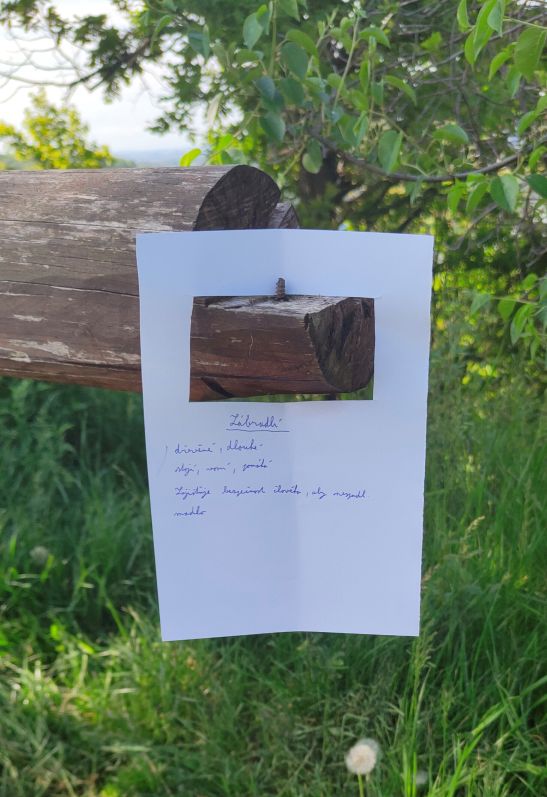 Zábradlí
dřevěné, dlouhé
stojí, voní, pomáhá
Zajišťuje bezpečnost člověka, aby nespadl.
madlo